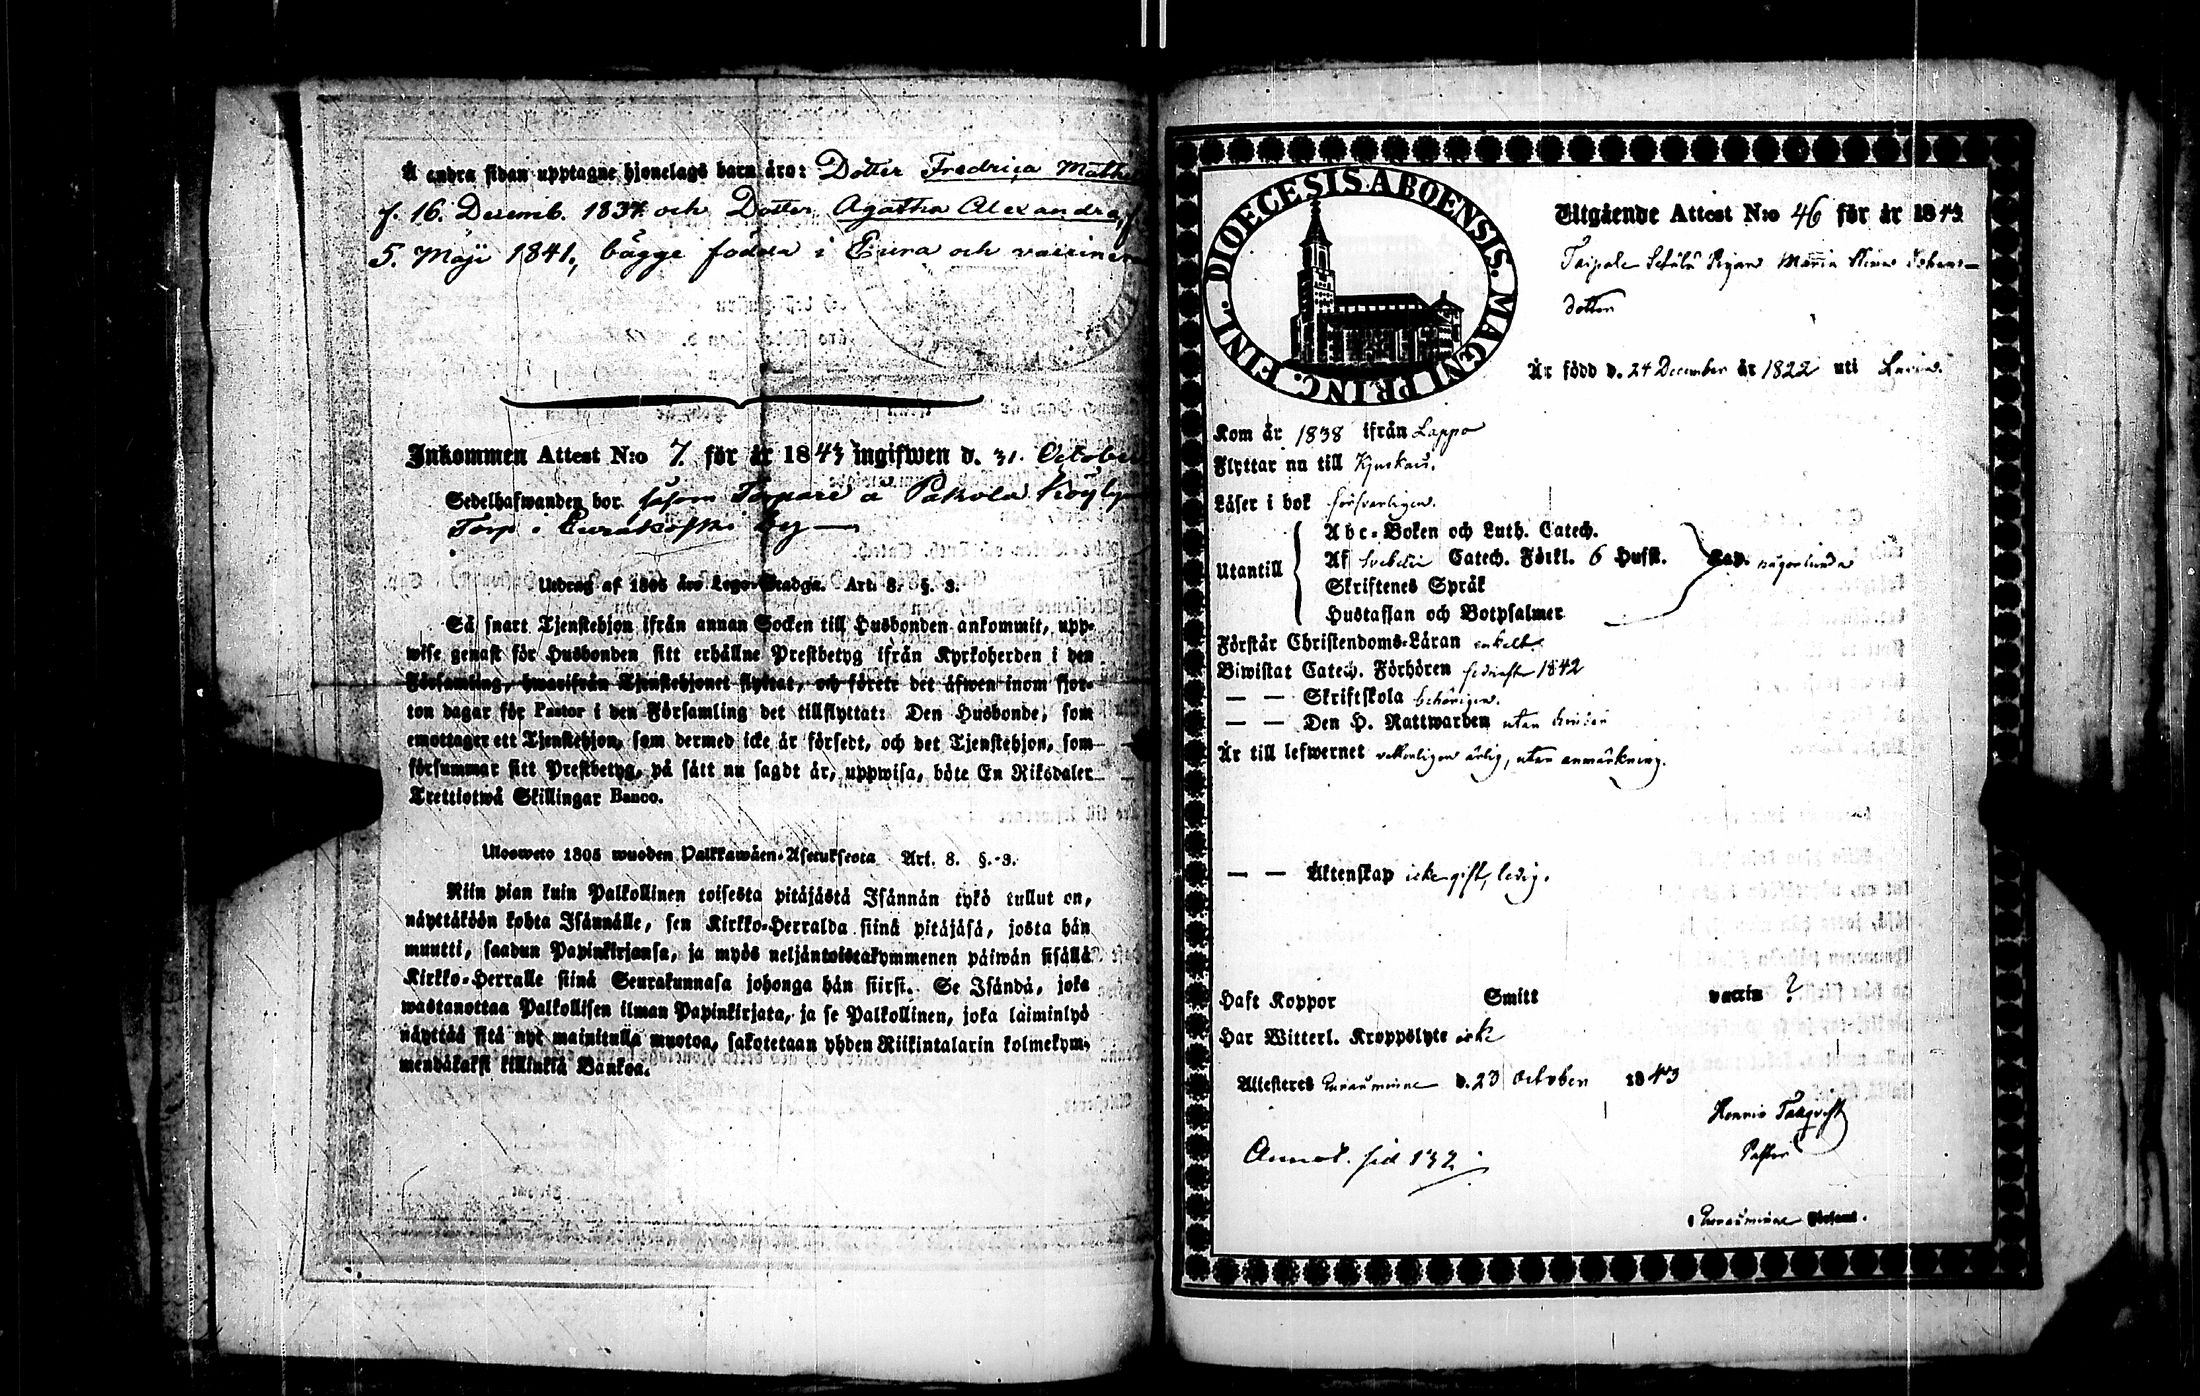 Å andra sidan upptagne hjonelags barn äro: Dotter Fredrica
f. 16. Decemb. 1837 och Dotter Agatha Alexandra, f.
5. Maji 1841, bägge födda i Eura och
Inkommen Attest N:o 7. för år 1843 ingifwen d. 31. October
Sedelhafwanden bor såsom Torpare å Pakola
Torp i Eurakoski by
Utdrag af 1805 års Lego-Stadga. Art. 8. §. 3.
Så snart Tjenstehjon ifrån annan Socken till Husbonden ankommit, upp-
wise genast för Husbonden sitt erhållne Prestbetyg ifrån Kyrkoherden i den
Församling, hwarifrån Tjenstehjonet flyttat, och förete det äfwen inom fjor-
ton dagar för Pastor i den Församling det tillflyttat: Den Husbonde, som
emottager ett Tjenstehjon, som dermed icke är försedt, och det Tjenstehjon, som
försummar sitt Prestbetyg, på sätt nu sagdt är, uppwisa, böte En Riksdaler
Trettiotwå Skillingar Banco.
Ulosweto 1805 wuoden Palkkawäen-Asetuksesta Art. 8. §. 3.
Niin pian kuin Palkollinen toisesta pitäjästä Isännän tykö tullut on,
näyttäköön kohta Isännälle, sen Kirkko-Herralda siinä pitäjäsä, josta hän
muutti, saadun Papinkirjansa, ja myös neljäntoistakymmenen päiwän sisällä
Kirkko-Herralle siinä Seurakunnasa johonga hän siirsi. Se Isändä, joka
wastanottaa Palkollisen ilman Papinkirjata, ja se Palkollinen, joka laiminlyö
näyttää sitä nyt mainitulla muotoa, sakotetaan yhden Riikintalarin kolmekym-
mendäkaksi killinkiä Bankoa.
DIOECESIS ABOENSIS. MAGNI PRINC. FINL.
Utgående Attest N:o 46 för år 1843
Taipale Pigan Maria Stina Johans-
dotter
Är född d. 24 December år 1822 uti
Kom år 1838 ifrån Lappo
Flyttar nu till Kjukais.
Läser i bok försvarligen.
Utantill
Abc-Boken och Luth. Catech.
Af Svebelii Catech. Förkl. 6 Hufst.
Skriftenes Språk
Hustaflan och Botpsalmer
Kap. någorlunda
Förstår Christendoms-Läran enkelt
Biwistat Catech. Förhören sednast 1842
— — Skriftskola behörigen.
— — Den H. Nattwarden utan hinder
Är till lefwernet veterligen ärlig, utan anmärkning.
— — Äktenskap icke gift, ledig.
Haft Koppor Smitt vaccin ?
Har Witterl. Kroppslyte icke
Attesteres Euraåminne d. 23 October 1843
Pastor
Annot. sid 132
i Euraåminne Församl.